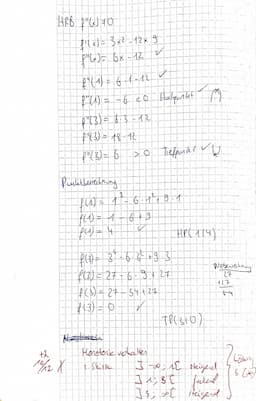 HRB f''(x) ≠ 0
f'(x) = 3x² - 12x 9
f''(x) = 6x - 12 ✓
f''(1) = 6·1 - 12
f''(1) = -6 < 0 Hochpunkt ✓
f''(3) = 6·3 - 12
f''(3) = 18 - 12
f''(3) = 6 > 0 Tiefpunkt ✓
Punktberechnung
f(1) = 1³ - 6·1² + 9·1
f(1) = 1 - 6 + 9
f(1) = 4 ✓ HP(1|4)
f(3) = 3³ - 6·3² + 9·3
f(3) = 27 - 6·9 + 27
f(3) = 27 - 54 + 27
f(3) = 0 ✓
27
+27
54
TP(3|0)
Monotonieverhalten
]-∞; 1[ steigend
]1; 3[ fallend
]3; ∞[ steigend